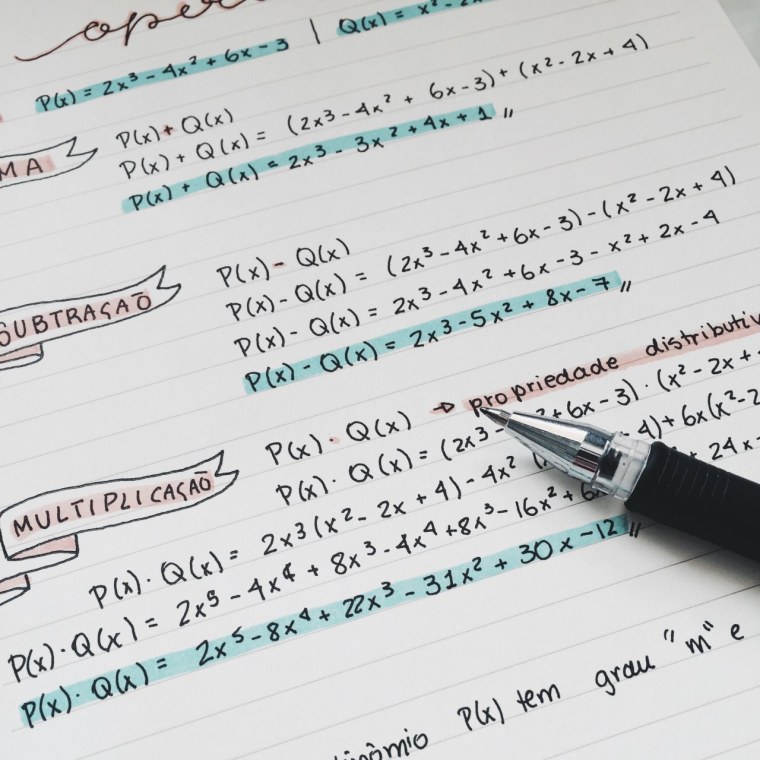 P(x) = 2x³ - 4x² + 6x - 3 | Q(x) = x² - 2x
P(x) + Q(x)
P(x) + Q(x) = (2x³ - 4x² + 6x - 3) + (x² - 2x + 4)
P(x) + Q(x) = 2x³ - 3x² + 4x + 1 //
SUBTRAÇÃO
P(x) - Q(x)
P(x) - Q(x) = (2x³ - 4x² + 6x - 3) - (x² - 2x + 4)
P(x) - Q(x) = 2x³ - 4x² + 6x - 3 - x² + 2x - 4
P(x) - Q(x) = 2x³ - 5x² + 8x - 7 //
MULTIPLICAÇÃO
P(x) · Q(x) → propriedade
P(x) · Q(x) = (2x³ - + 6x - 3) · (x² - 2x +
P(x) · Q(x) = 2x³ (x² - 2x + 4) - 4x² 4) + 6x (x² - 2
P(x) · Q(x) = 2x⁵ - 4x⁴ + 8x³ - 4x⁴ + 8x³ - 16x² + 24x -
P(x) · Q(x) = 2x⁵ - 8x⁴ + 22x³ - 31x² + 30x - 12 //
P(x) tem grau "m" e